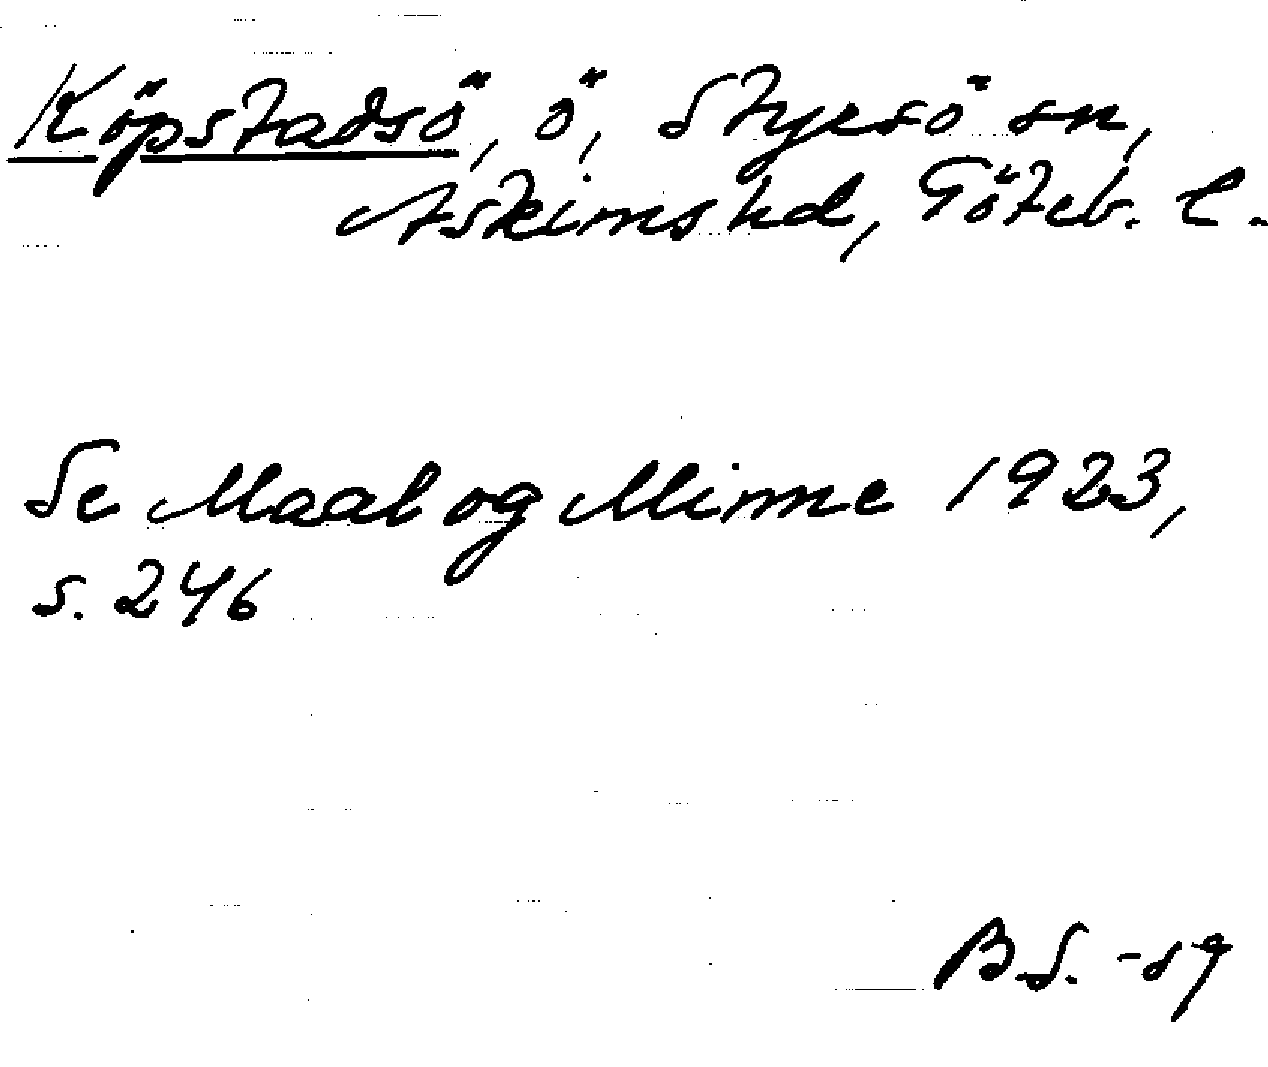 Köpstadsö, ö, Styrsö sn,
Askims hd, Göteb. l.
Se Maal og Minne 1923,
s. 246
B.S. -59